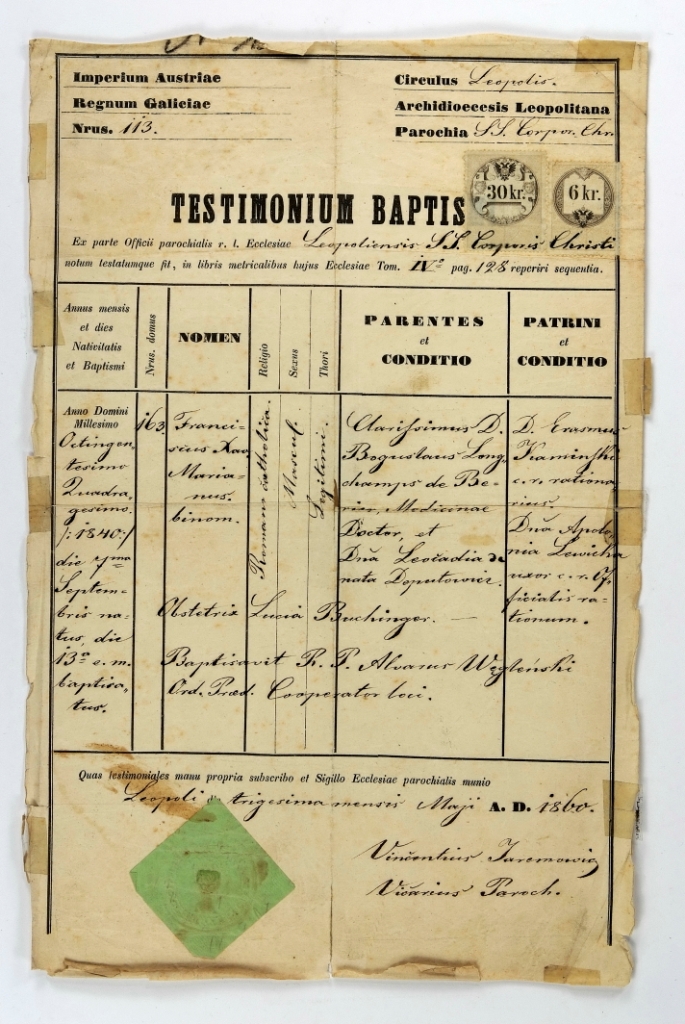 Imperium Austriae
Regnum Galiciae
Nrus. 113.
Circulus Leopolis.
Archidioecesis Leopolitana
Parochia S.S. Corpor. Chr.
30 kr.
6 kr.
TESTIMONIUM BAPTIS
Ex parte Officii parochialis r. l. Ecclesiae Leopoliensis S.S. Corporis Christi
notum testatumque fit, in libris metricalibus hujus Ecclesiae Tom. IVº pag. 128 reperiri sequentia.
Annus mensis
et dies
Nativitatis
et Baptismi
Nrus. domus
NOMEN
Religio
Sexus
Thori
PARENTES
et
CONDITIO
PATRINI
et
CONDITIO
Anno Domini
Millesimo
Octingen-
tesimo
Quadra-
gesimo
/:1840:/
die 7ma
Septem-
bris na-
tus, die
13a e. m.
baptisa-
tus.
163
Franci-
scus Xav.
Maria-
nus.
binom.
Romano catholica.
Mascul.
Legitimi.
Clarissimus D.
Boguslaus Long-
champs de Be-
rier, Medicinae
Doctor, et
Dña Leocadia de
nata Doputowicz.
D. Erasmus
Kaminski
c. r. rationa-
rius.
Dña Apolo-
nia Lewicka
uxor c. r. Of-
ficialis ra-
tionum.
Obstetrix Lucia Buchinger. —
Baptisavit R. P. Alvarus Węgleński
Ord. Præd. Cooperator loci.
Quas testimoniales manu propria subscribo et Sigillo Ecclesiae parochialis munio
Leopoli die trigesima mensis Maji A. D. 1860.
Vincentius Jaremowicz
Vicarius Paroch.